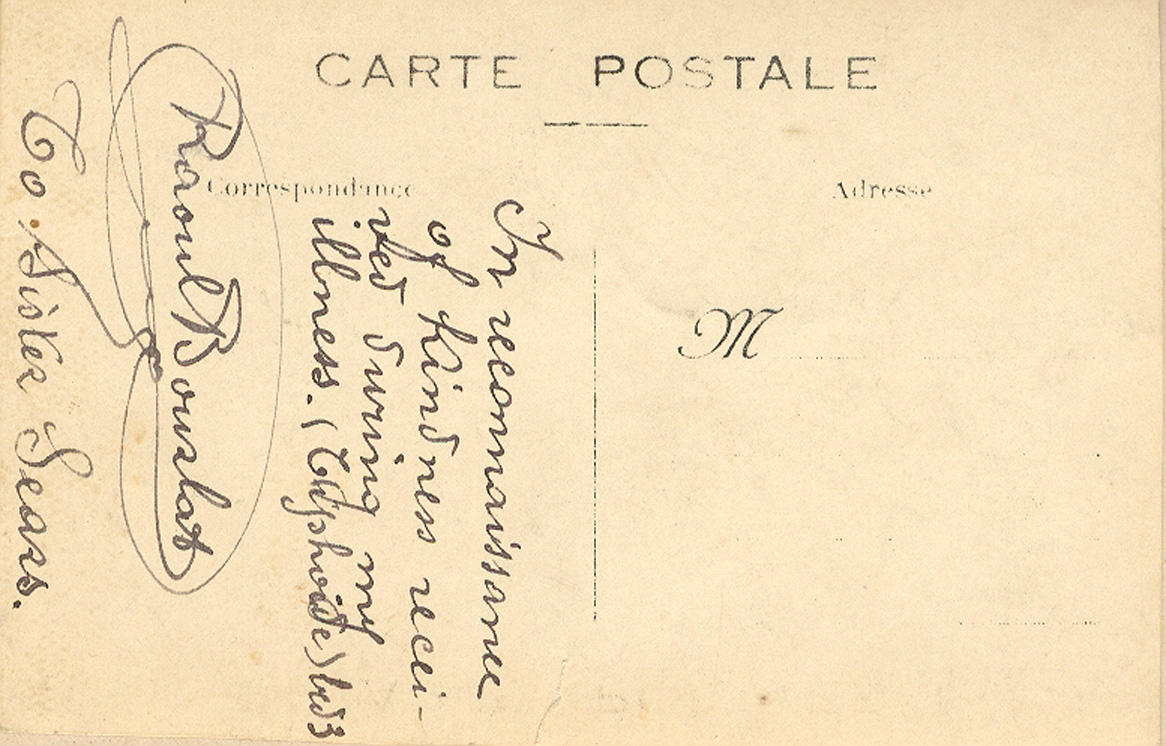 CARTE POSTALE
Correspondance
Adresse
M
In reconnaissance
of kindness recei-
ved during my
illness. (Typhoide)
Raoul Bourlat
To Sister Sears.